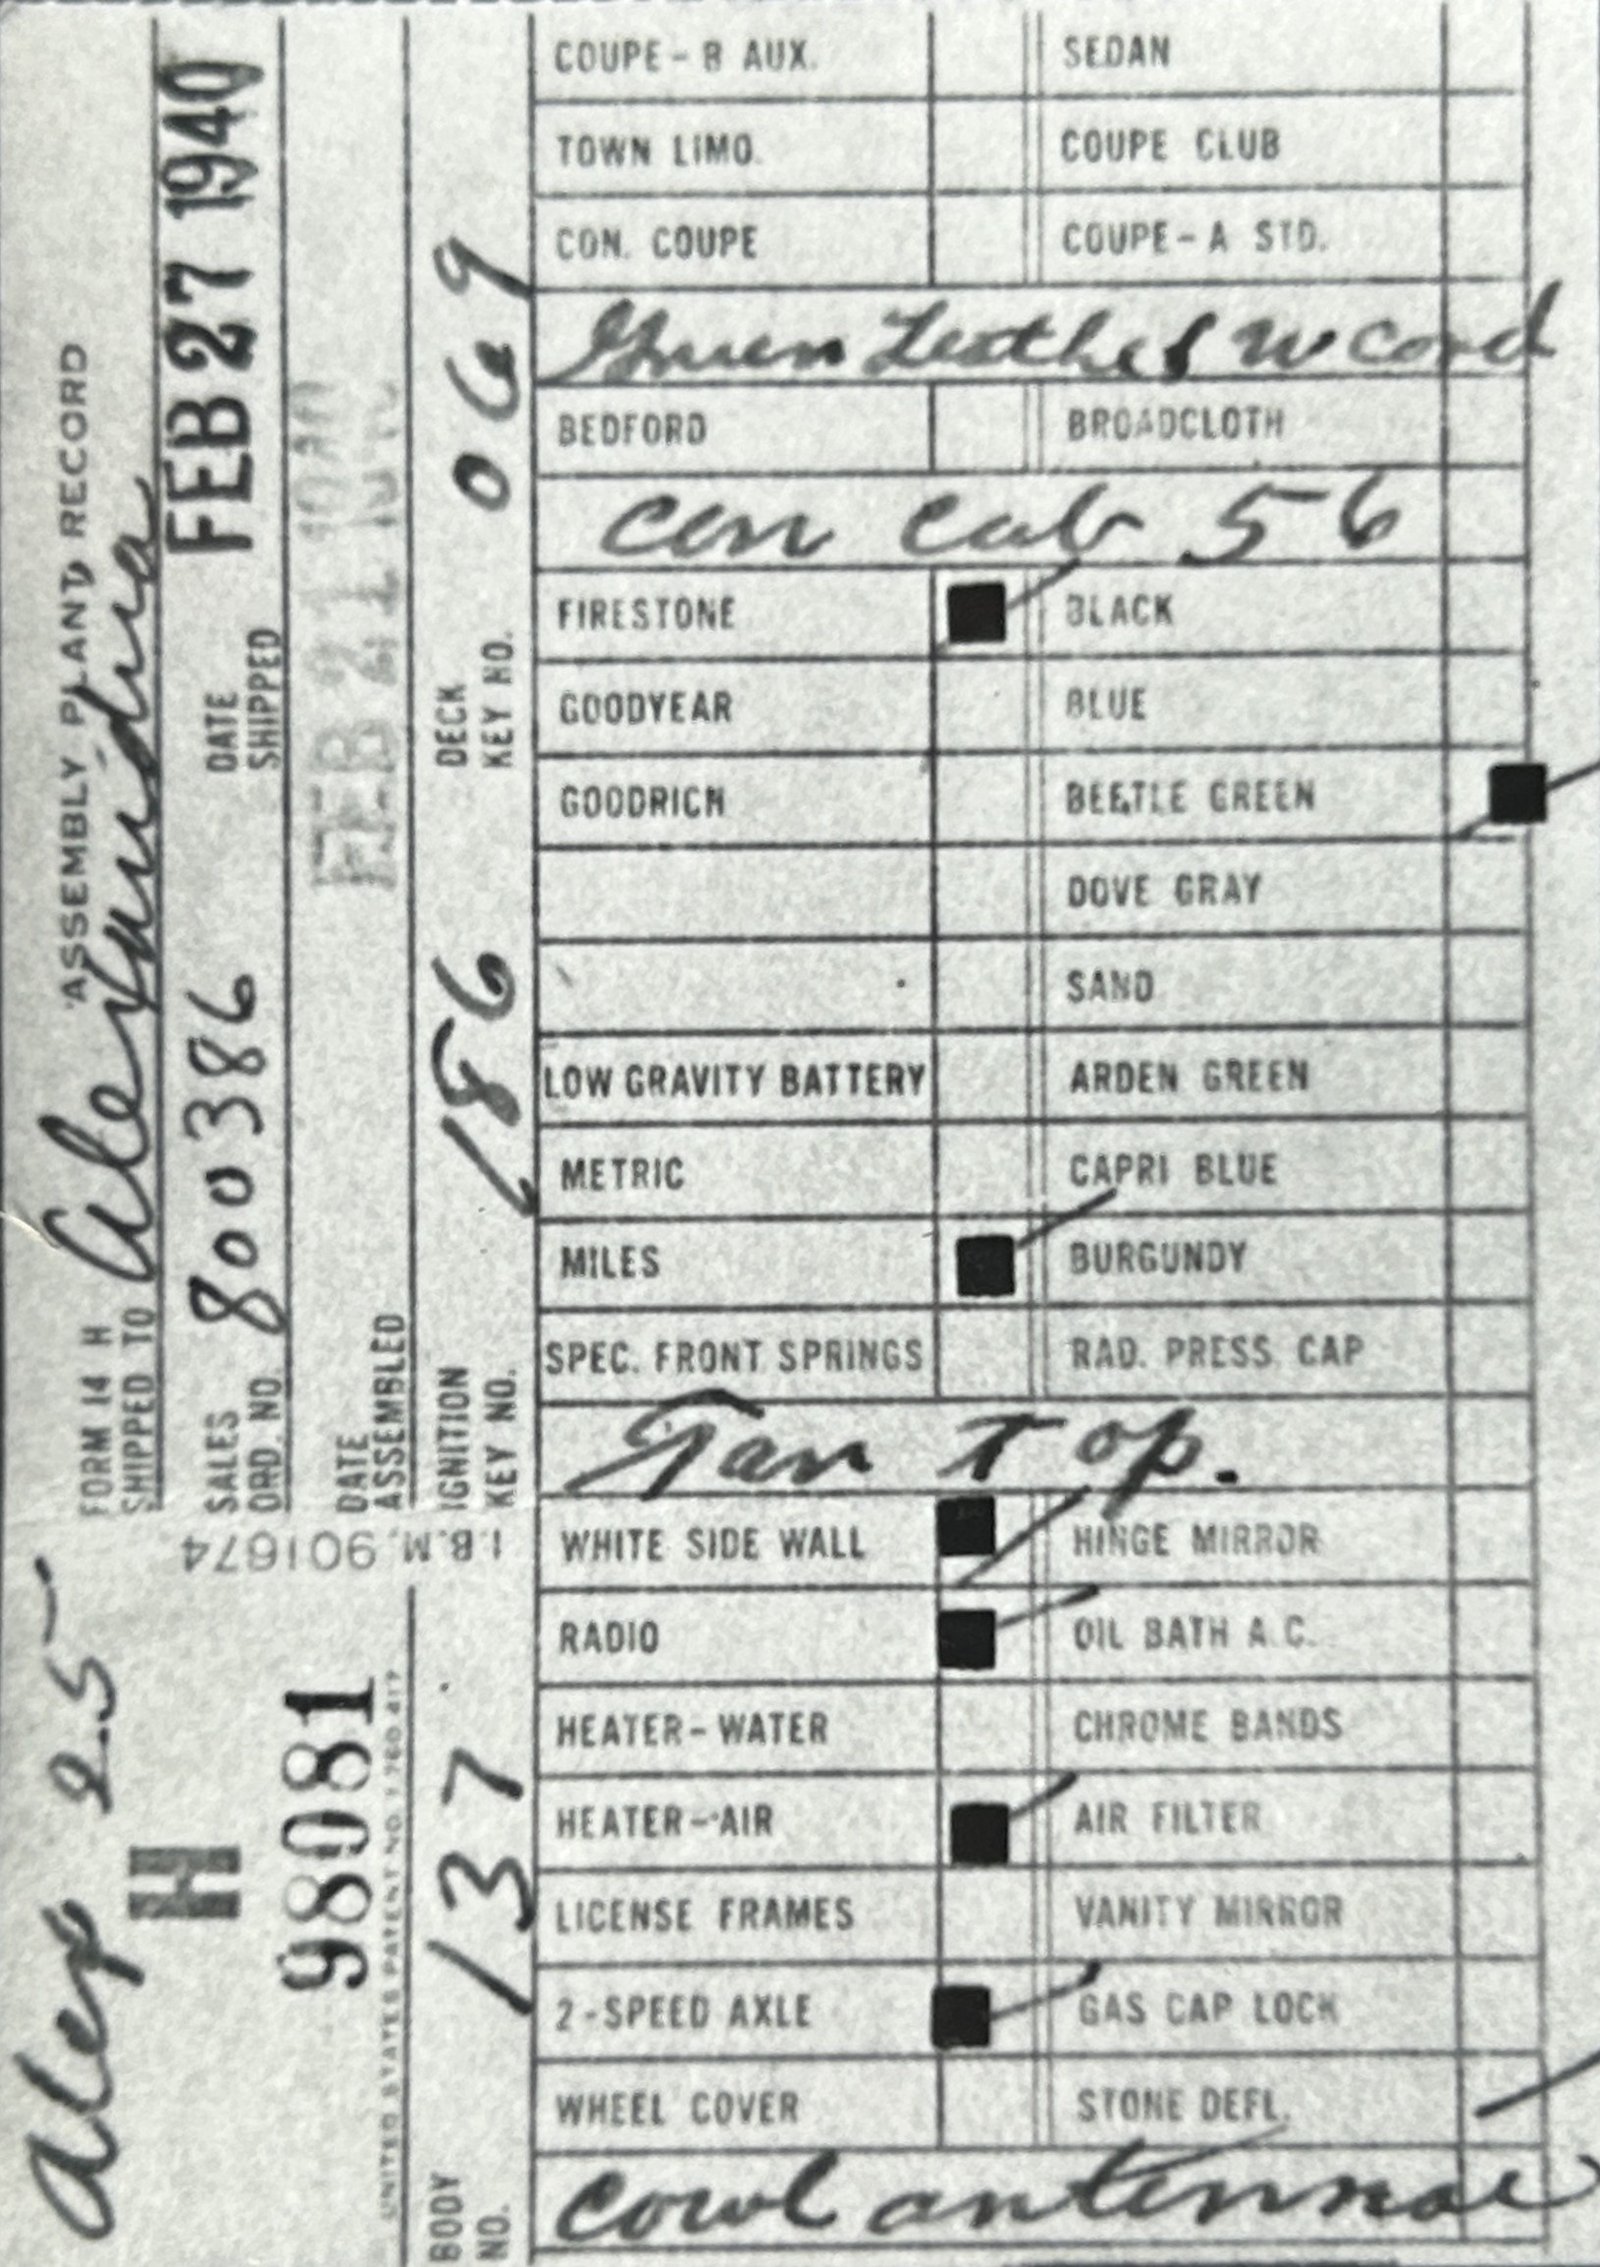 Alex 25
H
98081
UNITED STATES PATENT NO. 1,780,417
BODY NO. 137
I.B.M. 901674
FORM 14 H ASSEMBLY PLANT RECORD
SHIPPED TO Alexandria
SALES ORD. NO. 800386 DATE SHIPPED FEB 27 1940
DATE ASSEMBLED FEB 21 1940
IGNITION KEY NO. 186 DECK KEY NO. 069
COUPE-B AUX. SEDAN
TOWN LIMO. COUPE CLUB
CON. COUPE COUPE-A STD.
Green Leather W Cord
BEDFORD BROADCLOTH
Con Cab 56
FIRESTONE BLACK
GOODYEAR BLUE
GOODRICH BEETLE GREEN
DOVE GRAY
SAND
LOW GRAVITY BATTERY ARDEN GREEN
METRIC CAPRI BLUE
MILES BURGUNDY
SPEC. FRONT SPRINGS RAD. PRESS CAP
Tan Top.
WHITE SIDE WALL HINGE MIRROR
RADIO OIL BATH A.C.
HEATER-WATER CHROME BANDS
HEATER-AIR AIR FILTER
LICENSE FRAMES VANITY MIRROR
2-SPEED AXLE GAS CAP LOCK
WHEEL COVER STONE DEFL.
Cowl antennae